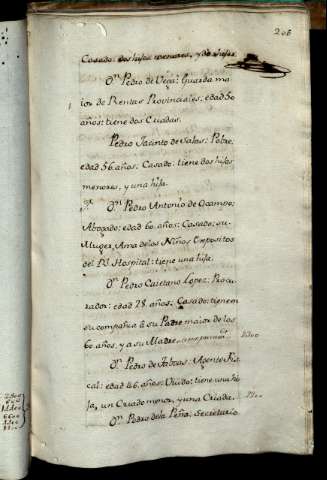 206
Casado: dos hijos menores, y de
Dn. Pedro de Vega: Guarda ma
ior de Rentas Provinciales, edad 50
años: tiene dos Criadas.
Pedro Jacinto de Salas: Pobre,
edad 56 años: Casado: tiene dos hijos
menores, y una hija.
Dn. Pedro Antonio de Ocampo:
Abogado: edad 60 años: Casado: su
Muger, Ama de los Niños Expositos
del Rl. Hospital: tiene una hija.
Dn. Pedro Caietano Lopez: Procu
rador: edad 28 años: Casado: tiene en
su compañia â su Padre maior de los
60 años, y a su Madre,
1100
Dn. Pedro de Fabras: Agente Fis
cal: edad 46 años: Viudo: tiene una hi
ja, un Criado menor, y una Criada.
1100
Dn. Pedro de la Peña: Secretario